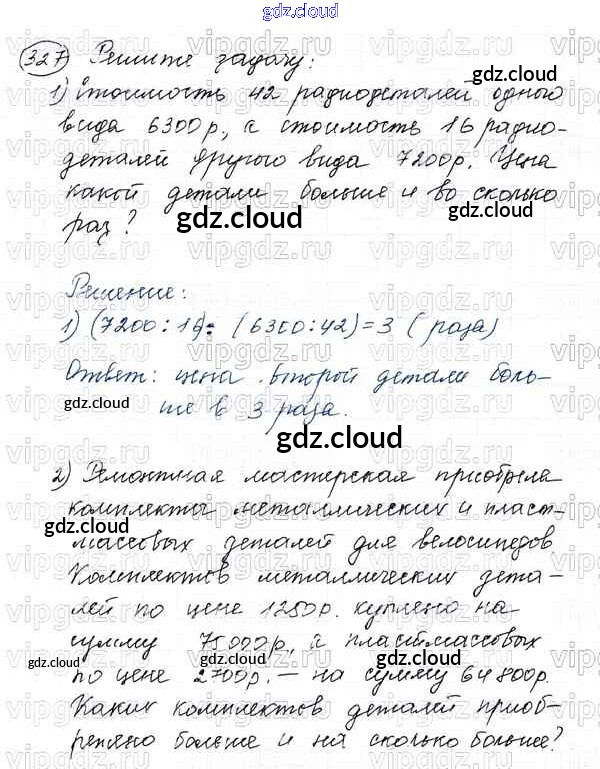 gdz.cloud
327 Решите задачу:
gdz.cloud
1) Стоимость 42 радиодеталей одного
вида 6300р, а стоимость 16 радио-
деталей другого вида 7200р. Цена
какой детали больше и во сколько
раз?
gdz.cloud
gdz.cloud
Решение:
1) (7200:16): (6300:42)=3 (раза)
Ответ: цена второй детали боль-
ше в 3 раза.
gdz.cloud
gdz.cloud
gdz.cloud
2) Ремонтная мастерская приобрела
комплекты металлических и пласт-
gdz.cloud
массовых деталей для велосипедов.
Комплектов металлических дета-
лей по цене 1250р. куплено на
сумму 75000р, а пластмассовых
gdz.cloud
gdz.cloud
по цене 2700р. — на сумму 64800р.
Каких комплектов деталей приоб-
ретено больше и на сколько больше?
gdz.cloud